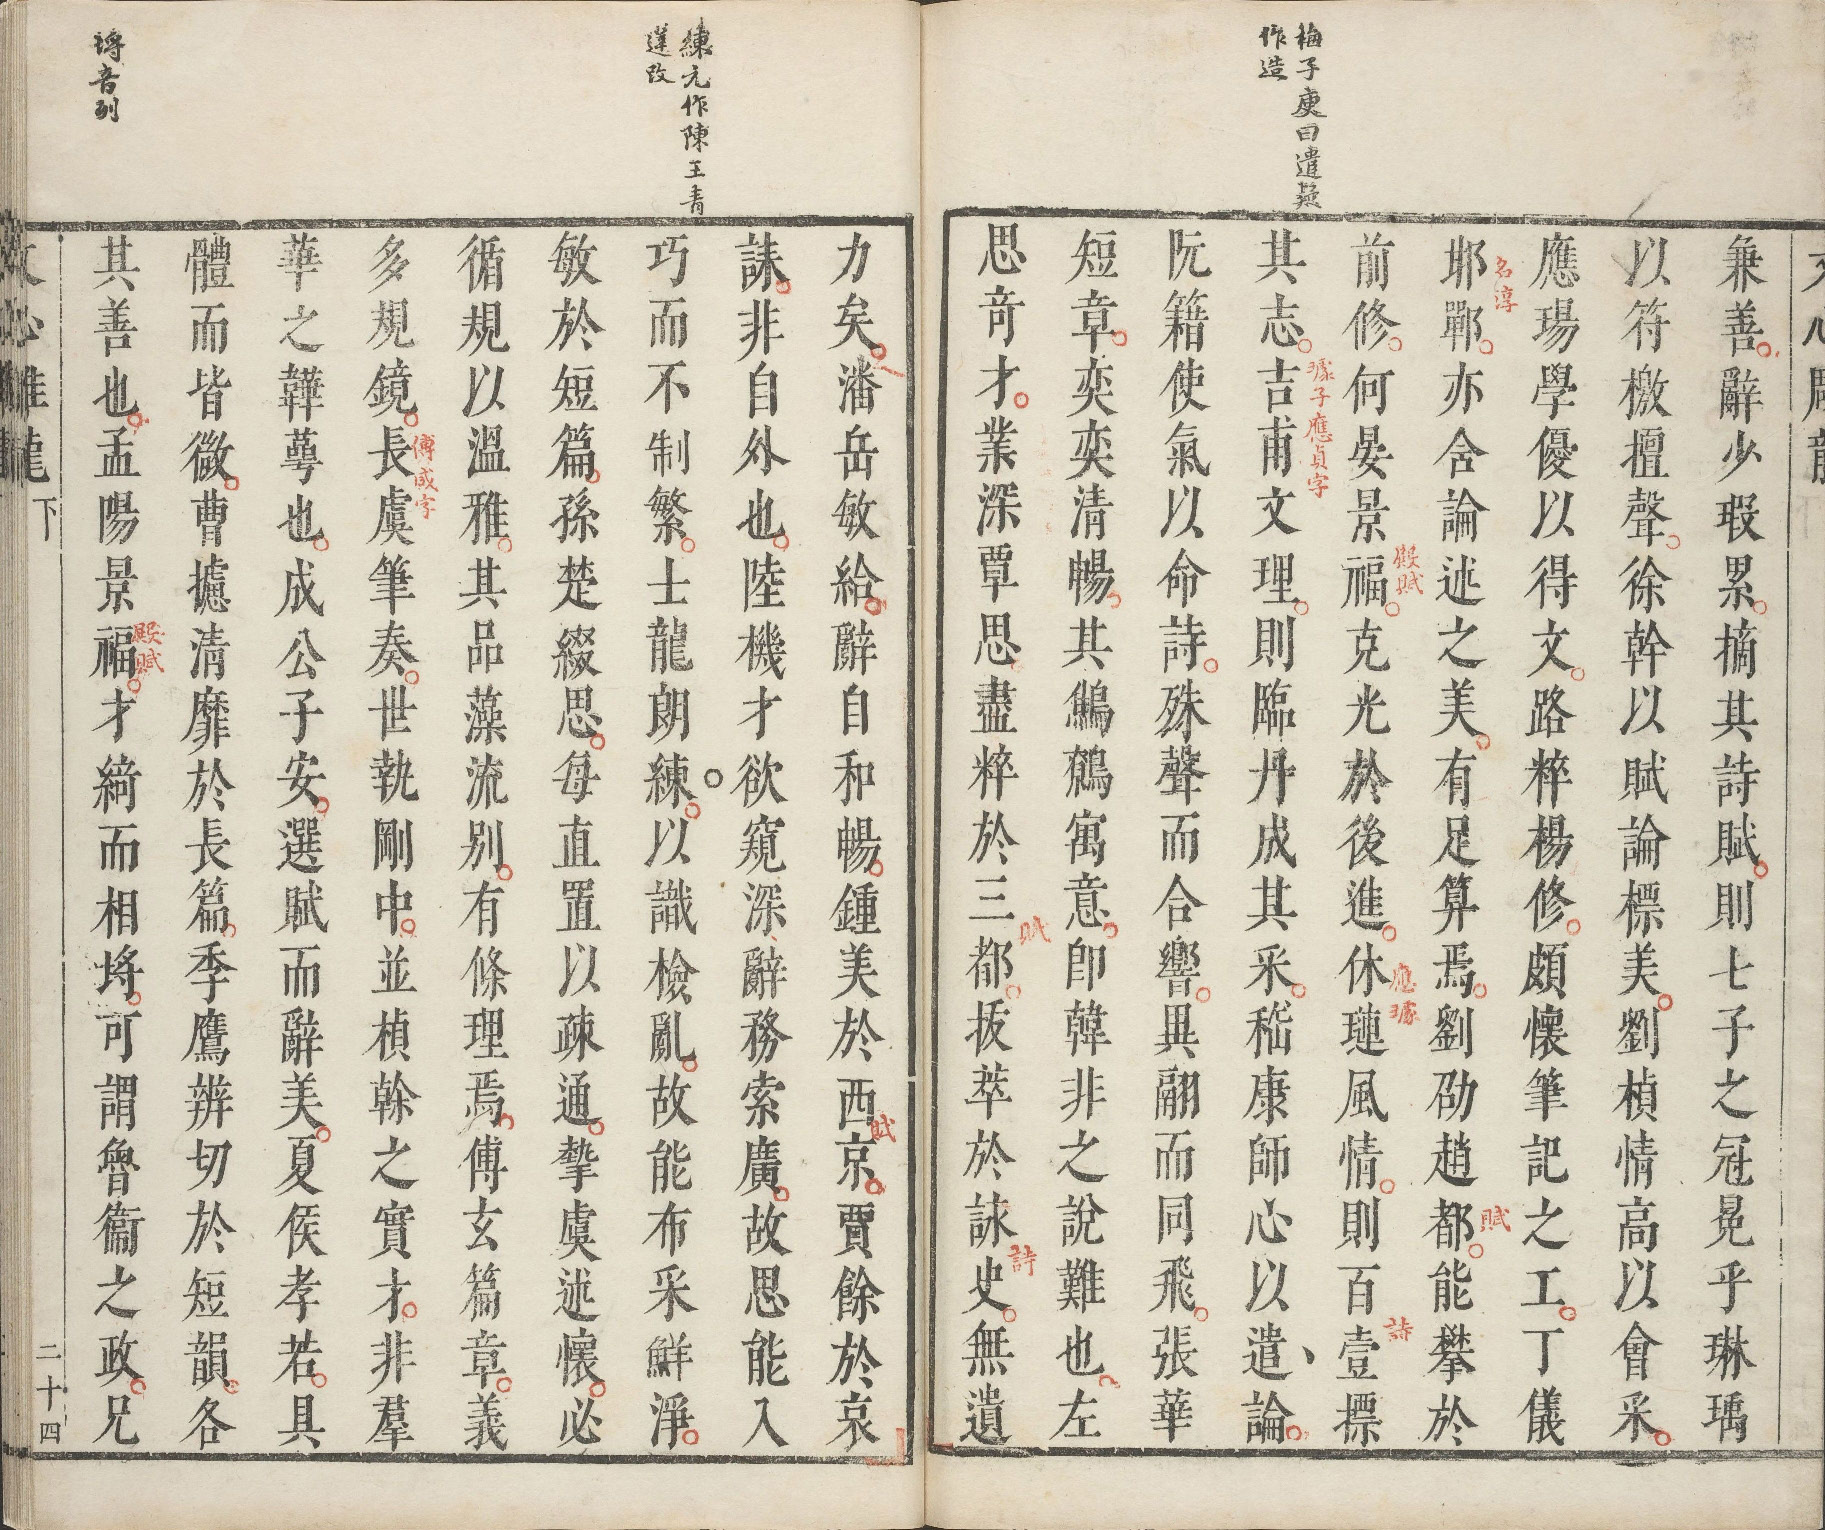 梅子庾曰遣疑
作造
兼善辭少瑕累摘其詩賦則七子之冠冕乎琳瑀
以符檄擅聲徐幹以賦論標美劉楨情高以會采
應瑒學優以得文路粹楊修頗懷筆記之工丁儀
邯鄲亦含論述之美有足算焉劉劭趙都能攀於
名淳
賦
前修何晏景福克光於後進休璉風情則百壹摽
殿賦
應璩
詩
其志吉甫文理則臨丹成其采嵇康師心以遣論
璩子應貞字
阮籍使氣以命詩殊聲而合響異翮而同飛張華
短章奕奕清暢其鷦鷯寓意卽韓非之說難也左
思奇才業深覃思盡粹於三都拔萃於詠史無遺
賦
詩
練元作陳王青
蓮改
力矣潘岳敏給辭自和暢鍾美於西京賈餘於哀
賦
誄非自外也陸機才欲窺深辭務索廣故思能入
巧而不制繁士龍朗練以識檢亂故能布采鮮淨
敏於短篇孫楚綴思每直置以疎通摯虞述懷必
循規以溫雅其品藻流别有條理焉傅玄篇章義
多規鏡長虞筆奏世執剛中並楨榦之實才非羣
傅咸字
華之韡萼也成公子安選賦而辭美夏侯孝若具
體而皆微曹攄清靡於長篇季鷹辨切於短韻各
其善也孟陽景福才綺而相埒可謂魯衞之政兄
殿賦
埒音列
文心雕龍
下
二十四